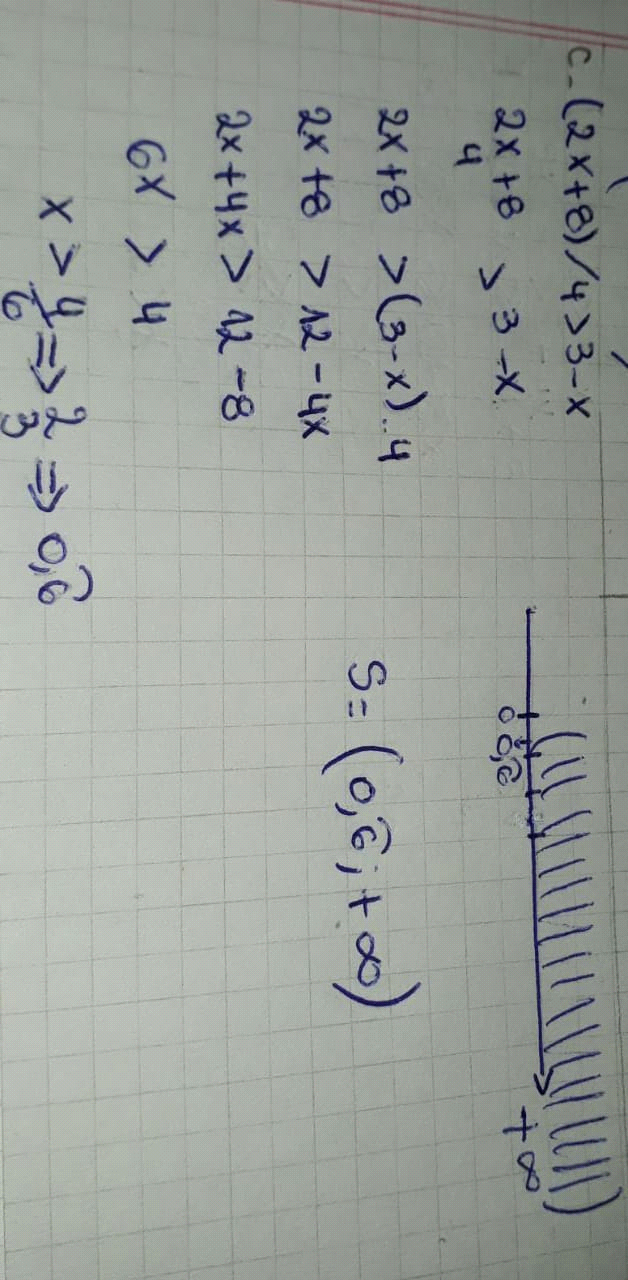 c-(2x+8)/4>3-x
2x+8 > 3-x
4
2x+8 >(3-x).4
2x+8 > 12-4x
2x+4x> 12-8
6x > 4
x > 4/6 => 2/3 => 0,6̑
0 0,6̑ +∞
S= (0,6̑ ; +∞)